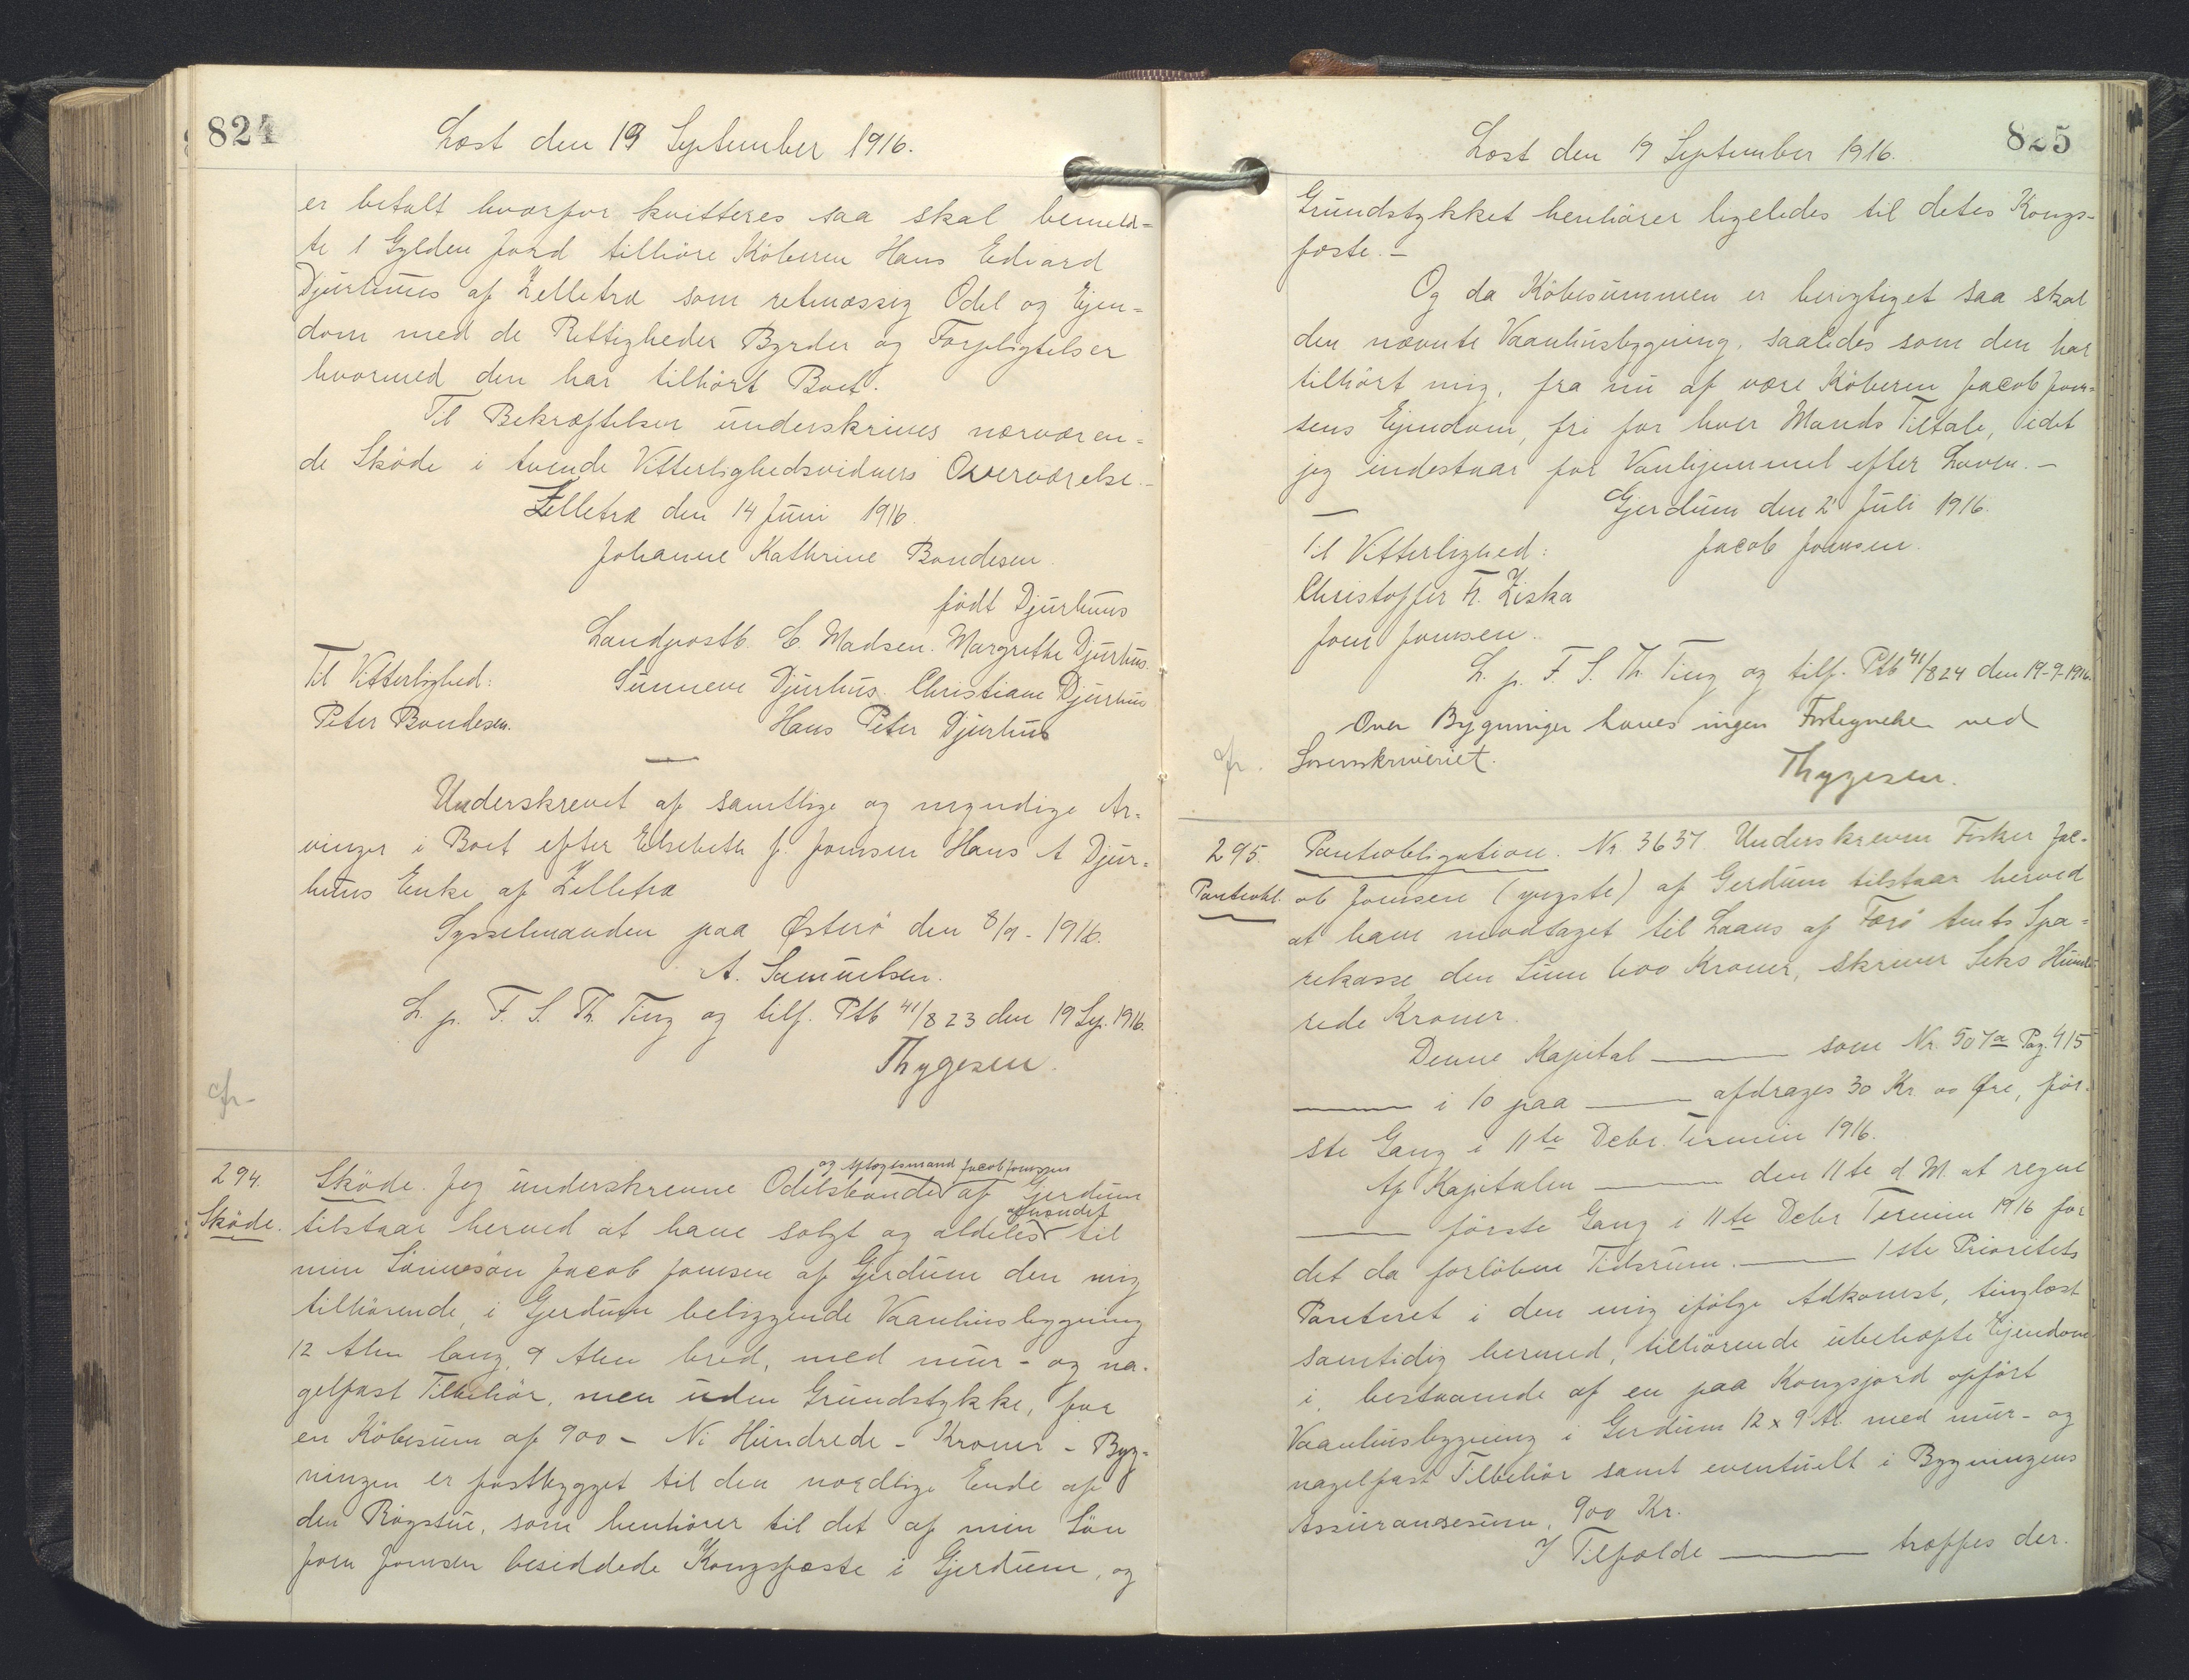 824
Læst den 19 September 1916.
er betalt hvorfor kvitteres saa skal bemeld=
te 1 Gylden Jord tilhøre Köberen Hans Edvard
Djurhuus af Zelletræ som retmæssig Odel og Ejen=
dom med de Rettigheder Byrder og Forpligtelser
hvormed den har tilhört Boet.
Til Bekræftelse underskrives nærværen=
de Sköde i tvende Vitterlighedsvidners Overværelse.-
Zelletræ den 14 Juni 1916.
Johanne Kathrine Bondesen.
födt Djurhuus
Landpostb. C. Madsen. Margrethe Djurhus.
Til Vitterlighed: Sunneve Djurhus. Christiane Djurhus
Peter Bondesen. Hans Peter Djurhus
Underskrevet af samtlige og myndige Ar=
vinger i Boet efter Elsebeth f. Joensen Hans A Djur=
huus Enke af Zelletræ
Sysselmanden paa Østerö den 8/9 - 1916.
A. Samuelsen.
L. p. F. S. Th. Ting og tilf. Ptb 41/823 den 19 Sep. 1916.
Thygesen.
cfr.
294.
Sköde.
og Aftægtsmand Jacob Joensen
Sköde. Jeg underskrevne Odelsbonde af Gjerdum
afhændet
tilstaar herved at have solgt og aldeles til
min Sönnesön Jacob Joensen af Gjerdum den mig
tilhörende, i Gjerdum beliggende Vaanhusbygning
12 Alen lang, 9 Alen bred, med mur- og na-
gelfast Tilbehör, men uden Grundstykke, for
en Köbesum af 900 - Ni Hundrede - Kroner - Byg-
ningen er fastbygget til den nordlige Ende af
den Rögstue, som henhörer til det af min Sön
Joen Joensen besiddede Kongsfæste i Gjerdum, og
825
Læst den 19 September 1916.
Grundstykket henhörer ligeledes til dettes Kongs-
fæste.-
Og da Köbesummen er berigtiget saa skal
den nævnte Vaanhusbygning, saaledes som den har
tilhört mig, fra nu af være Köberen Jacob Joen-
sens Ejendom, fri for hver Mands Tiltale, idet
jeg indestaar for Vanhjemmel efter Loven.-
Gjerdum den 2' Juli 1916.
Til Vitterlighed: Jacob Joensen.
Christoffer Fr. Ziska
Joen Joensen.
L. p. F. S. Th. Ting og tilf. Ptb 41/824 den 19-9-1916.
Over Bygninger haves ingen Fortegnelse ved
cfr. Sorenskriveriet.
Thygesen.
295.
Panteobl.
Panteobligation. Nr. 3637. Underskreven Fisker Jac-
ob Joensen (yngste) af Gerdum tilstaar herved
at have modtaget til Laans af Færö Amts Spa=
rekasse den Sum 600 Kroner, skriver Seks Hund-
rede Kroner.
Denne Kapital ——— som Nr. 507a Pag. 415
——— i 10 paa ——— afdrages 30 Kr 00 Øre, för-
ste Gang i 11te Decbr. Termin 1916.
Af Kapitalen ——— den 11te d M. at regne
——— förste Gang i 11te Decbr Termin 1916 for
det da forlöbne Tidsrum. ——— 1ste Prioritets
Panteret i den mig ifölge Adkomst, tinglæst
samtidig hermed, tilhörende ubehæftede Ejendom
i, bestaaende af en paa Kongsjord opfört
Vaanhusbygning i Gerdum 12 x 9 Al. med mur- og
nagelfast Tilbehör samt eventuelt i Bygningens
Assurancesum, 900 Kr.
I Tilfælde ——— træffes der.